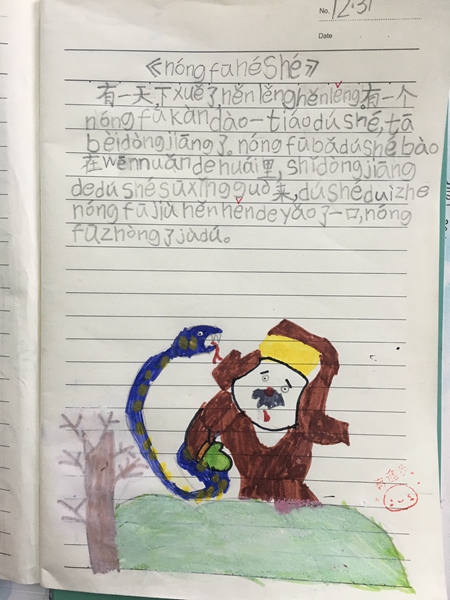 No. 12.31
Date
《nóng fū hé Shé》
有一天,下xuě了,hěn lěng hěn lěng,有一个
nóng fū kàn dào一tiáo dú shé, tā
bèi dòng jiāng了。nóng fū bǎ dú shé bào
在wēn nuǎn de huái里, shǐ dòng jiāng
de dú shé sū xǐng guò来, dú shé duì zhe
nóng fū jiù hěn hěn de yǎo了一口, nóng
fū zhòng了jù dú。